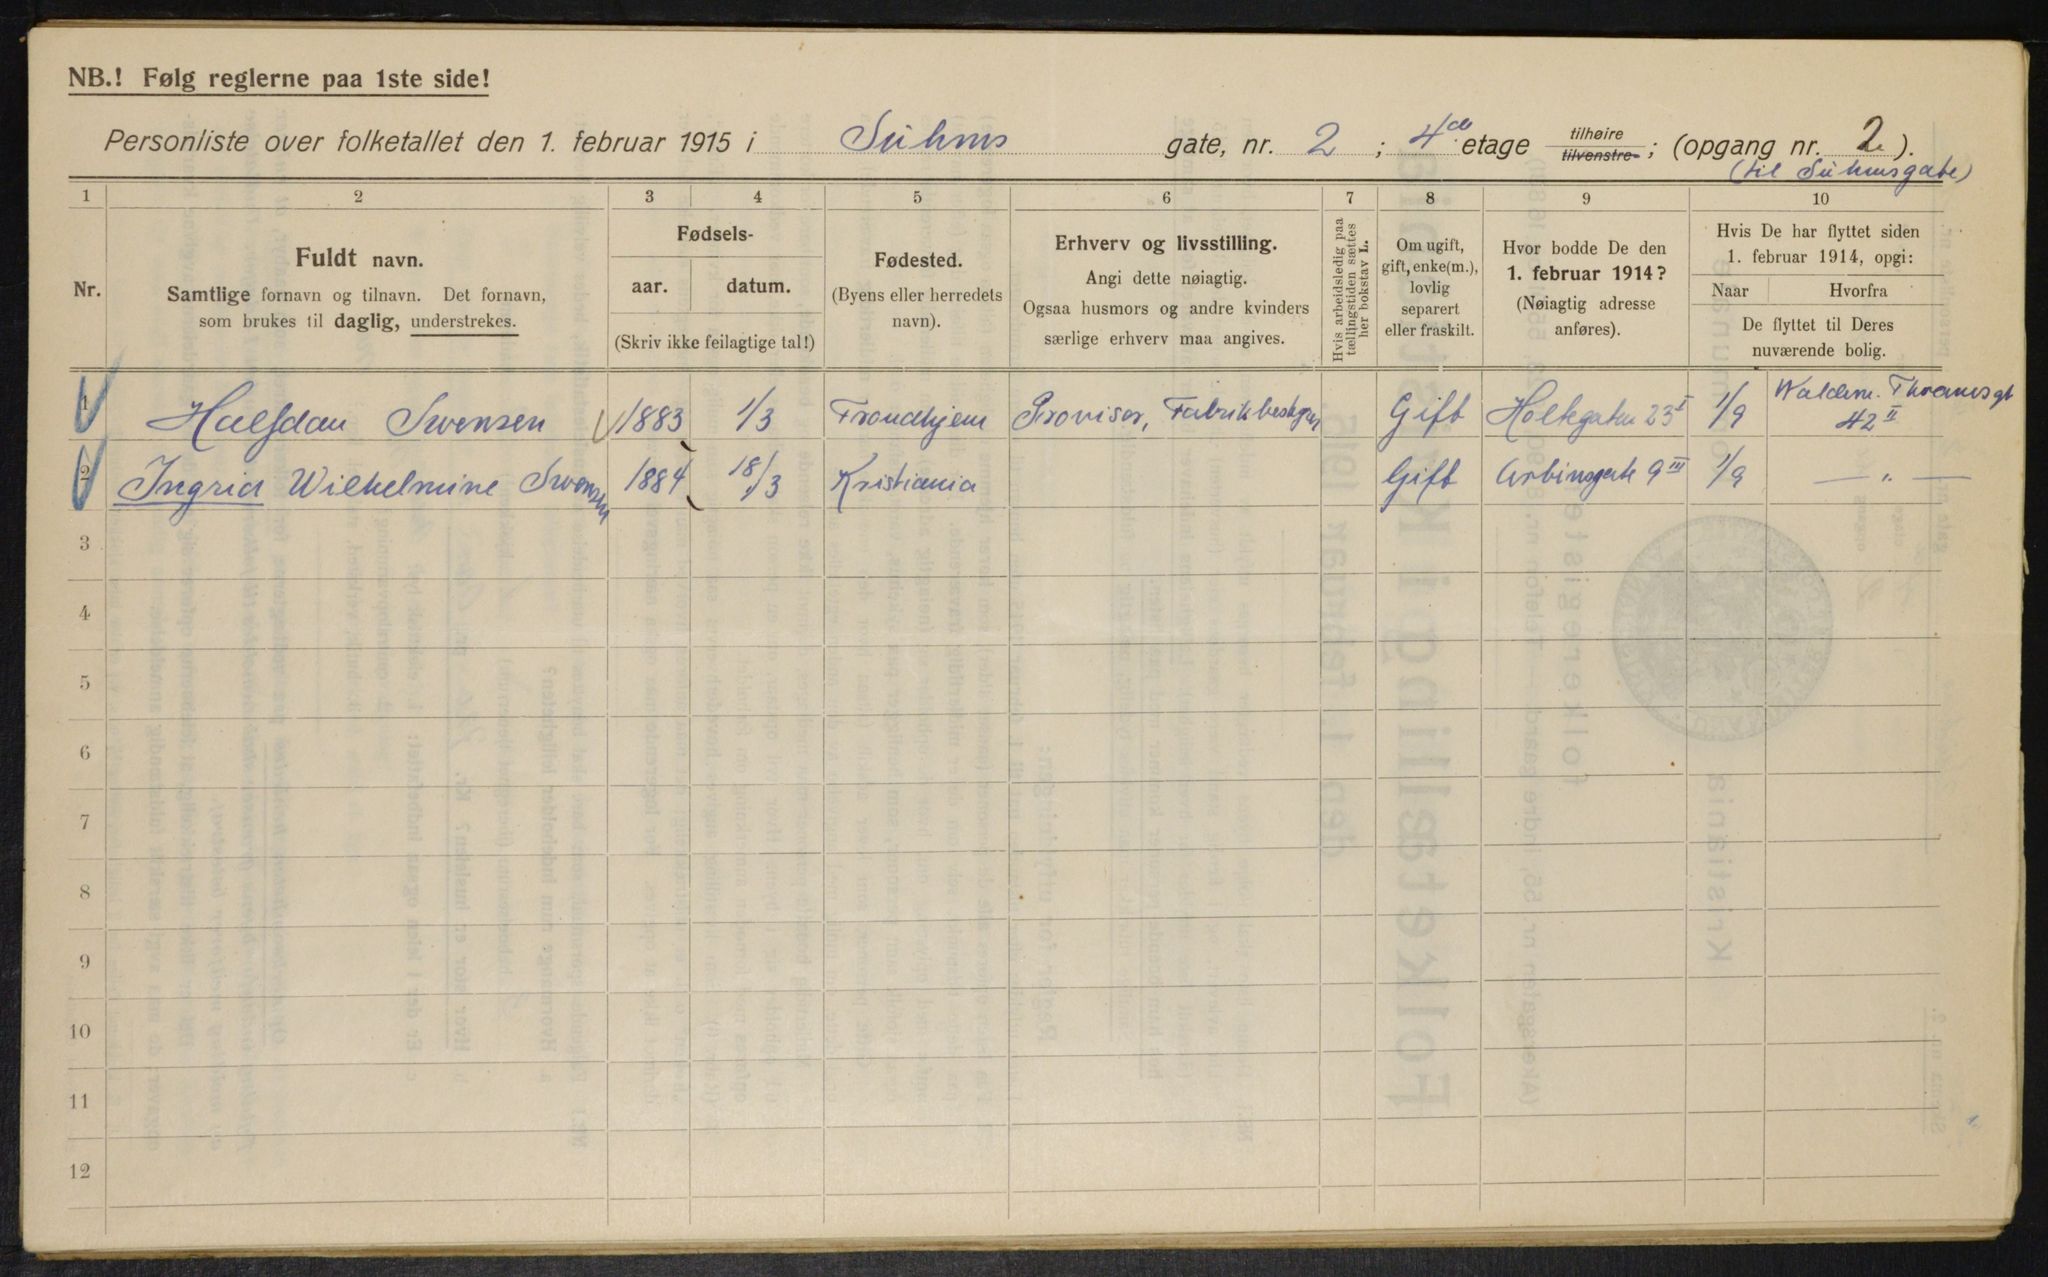 NB.! Følg reglerne paa 1ste side!
Personliste over folketallet den 1. februar 1915 i Suhms gate, nr. 2 ; 4de etage tilhøire tilvenstre ; (opgang nr. 2 ).
(til Suhmsgate)
1 2 3 4 5 6 7 8 9 10
Nr.
Fuldt navn.
Samtlige fornavn og tilnavn. Det fornavn,
som brukes til daglig, understrekes.
Fødsels-
aar. datum.
(Skriv ikke feilagtige tal!)
Fødested.
(Byens eller herredets
navn).
Erhverv og livsstilling.
Angi dette nøiagtig.
Ogsaa husmors og andre kvinders
særlige erhverv maa angives.
Hvis arbeidsledig paa
tællingstiden sættes
her bokstav L.
Om ugift,
gift, enke(m.),
lovlig
separert
eller fraskilt.
Hvor bodde De den
1. februar 1914?
(Nøiagtig adresse
anføres).
Hvis De har flyttet siden
1. februar 1914, opgi:
Naar Hvorfra
De flyttet til Deres
nuværende bolig.
1 Halfdan Svensen 1883 1/3 Trondhjem Provisor, Gift Holtegaten 23 I 1/9 Waldem. Thranesgt
42 II
2 Ingrid Wilhelmine Svensen 1884 18/3 Kristiania Gift Arbinsgate 9 III 1/9 — " —
3
4
5
6
7
8
9
10
11
12